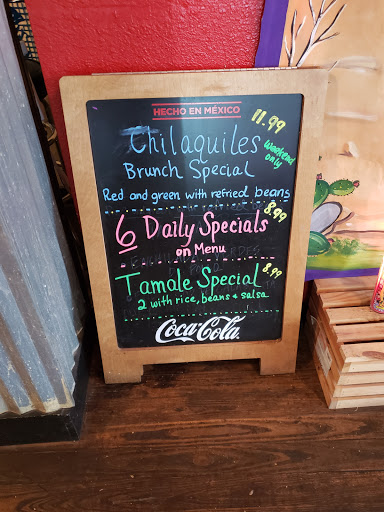 HECHO EN MÉXICO
Chilaquiles 11.99
Brunch Special weekend only
Red and green with refried beans
6 Daily Specials 8.99
on Menu
Tamale Special 8.99
2 with rice, beans & salsa
Coca-Cola